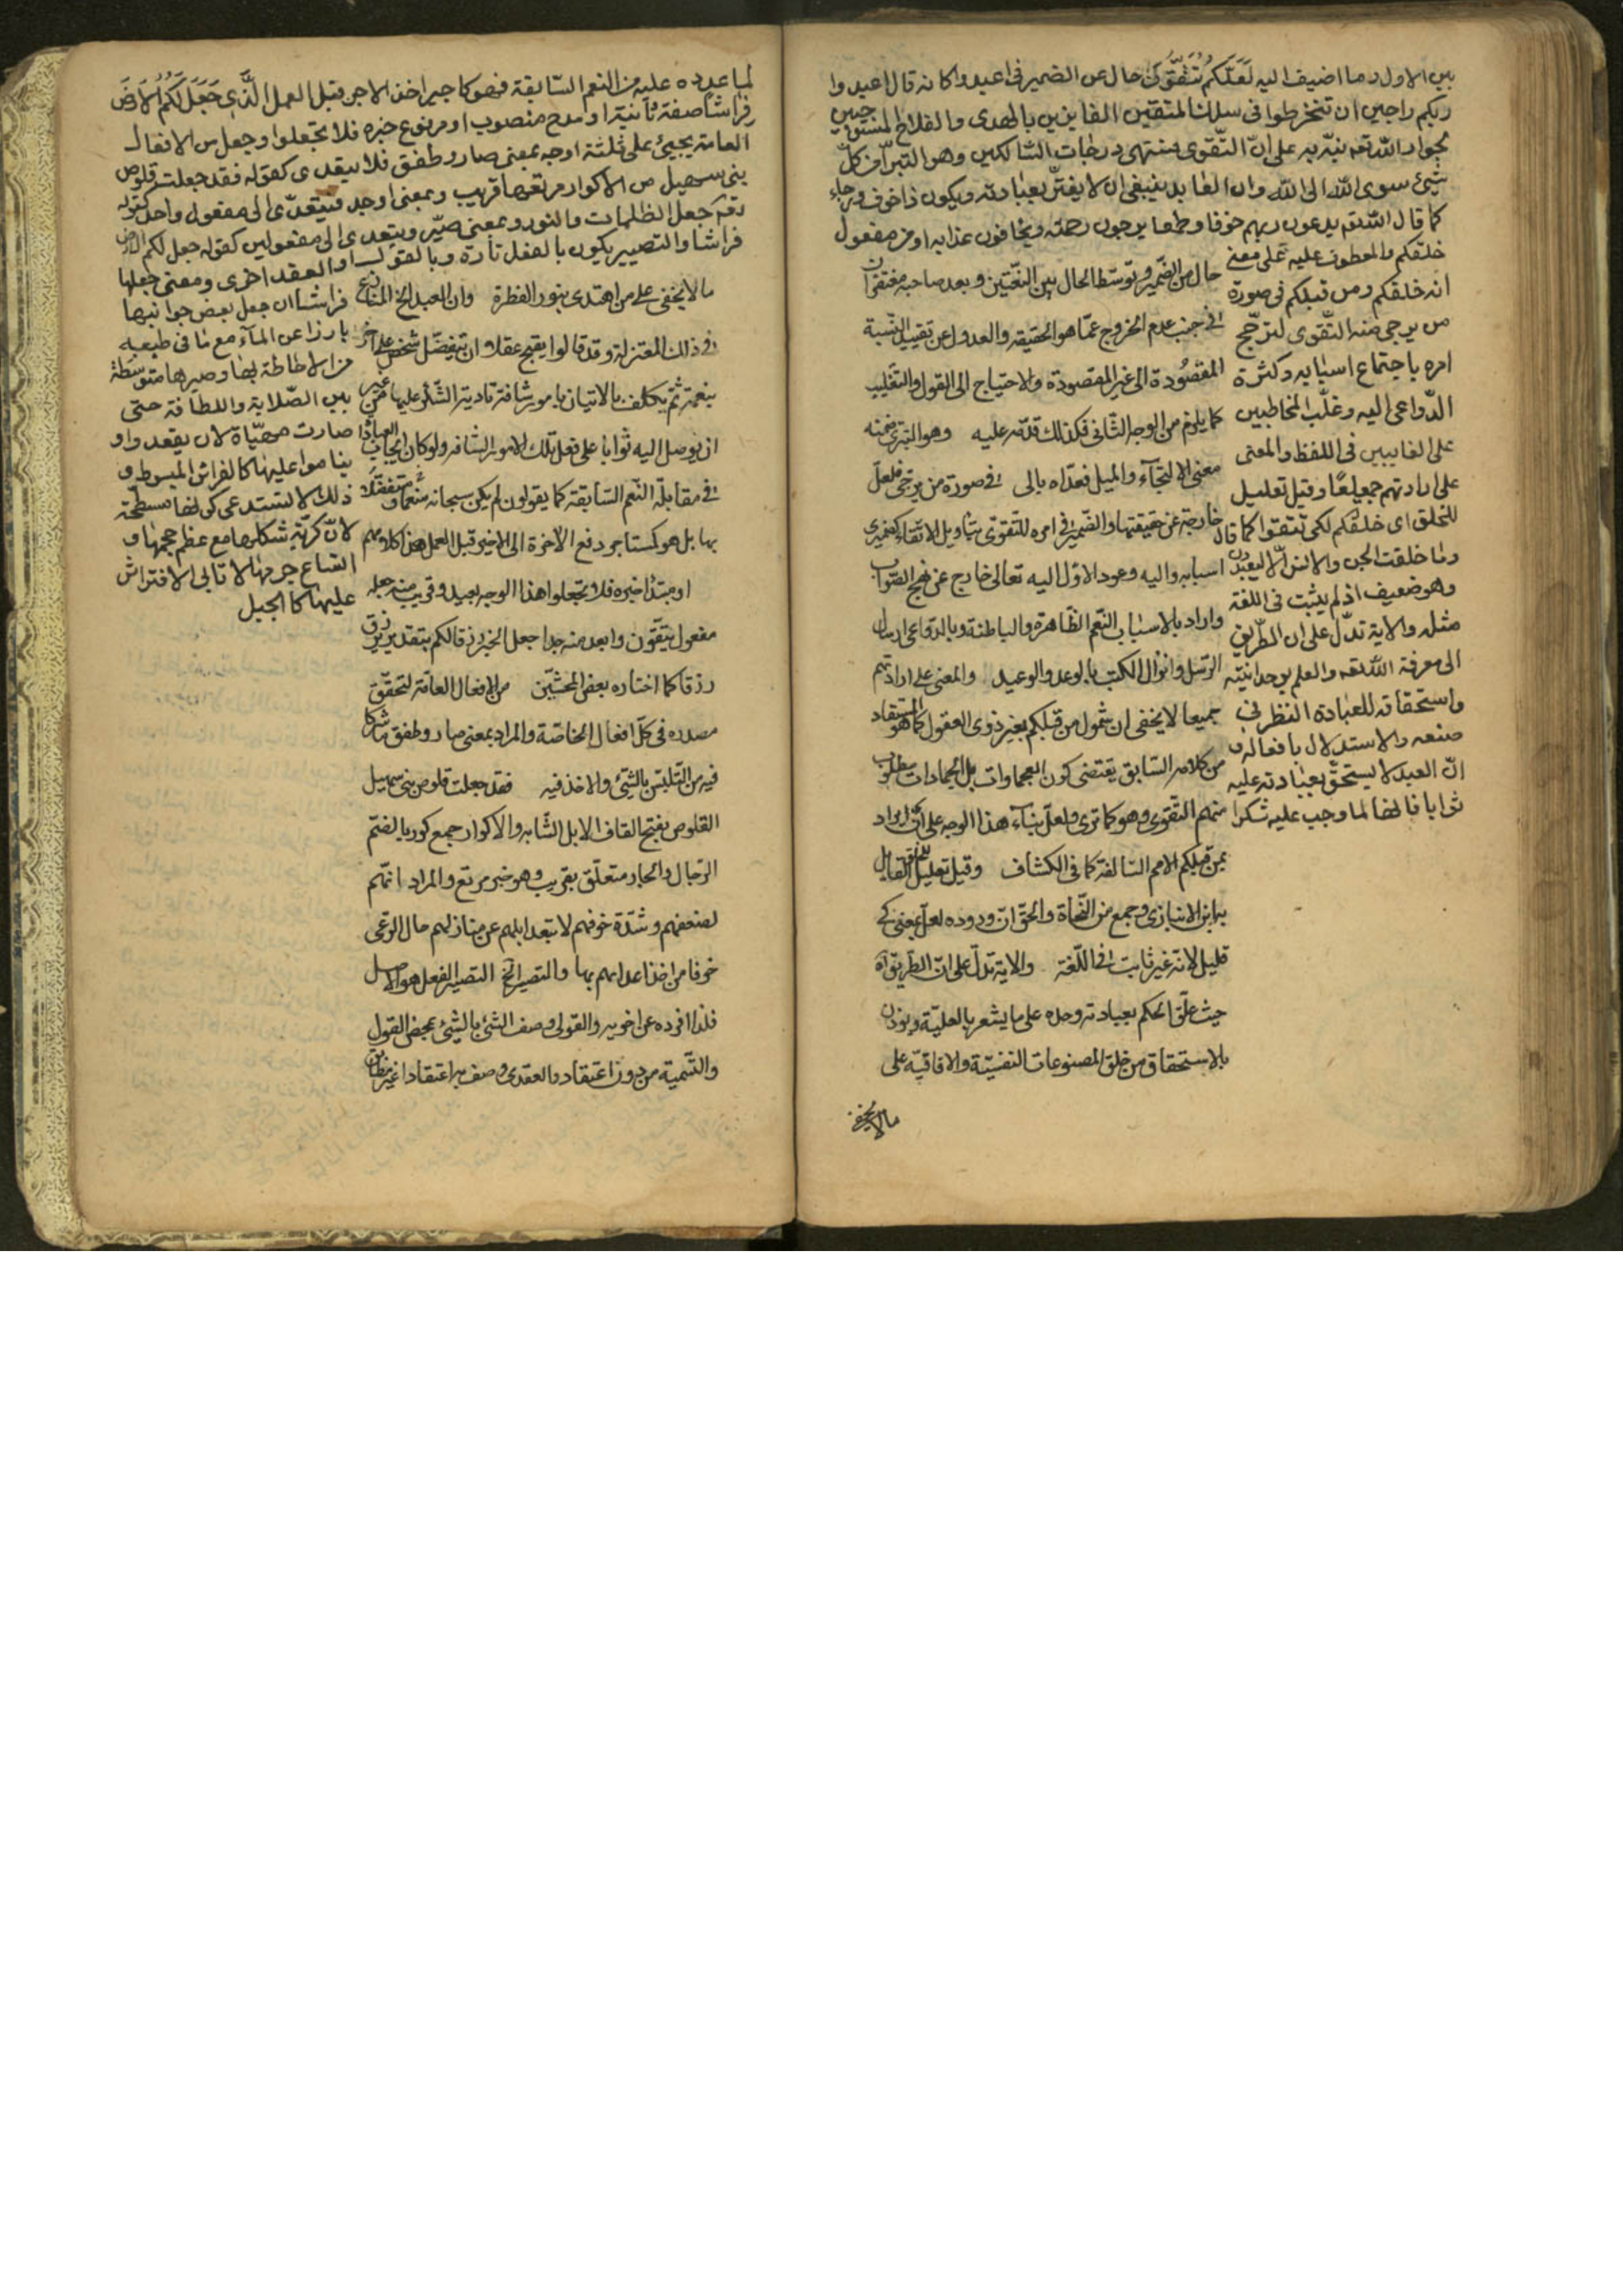 بين الاول وما اضيف اليه لَعَلَّكُمْ تَتَّقُونَ حال عن الضمير في اعبدوا كانه قال اعبدوا
ربكم راجين ان تنخرطوا في سلك المتقين الفايزين بالهدى والفلاح المستوجبين
لجوار الله تعه نبّه به على انّ التّقوى منتهى درجات السّالكين وهو التبرّأ من كلّ
شيئ سوى الله الى الله وان العابد ينبغي ان لا يغترّ بعبادته ويكون ذا خوف ورجاء
كما قال الله تعه يدعون ربهم خوفا وطمعا يرجون رحمته ويخافون عذابه او من مفعول
خلقكم والمعطوف عليه على معنى
انه خلقكم ومن قبلكم في صورة
من يرجى منه التّقوى لترجّح
امره باجتماع اسبابه وكثرة
الدّواعى اليه وغلّب المخاطبين
على الغايبين في اللفظ والمعنى
على ارادتهم جميعًا وقيل تعليل
للخلق اى خلقكم لكى تتّقوا كما قال
وما خلقت الجن والانس الّا ليعبدون
وهو ضعيف اذ لم يثبت في اللغة
مثله والاية تدلّ على ان الطّريق
الى معرفة الله تعه والعلم بوحدانيّته
واستحقاقه للعبادة النظر في
صنعه والاستدلال بافعاله و
انّ العبد لا يستحقّ بعبادته عليه
ثوابا فانها لما وجب عليه شكرا
حال من الضّمير وتوسّط الحال بين النّعتين وبعد صاحبه مغتفران
في جنب عدم الخروج عمّا هو الحقيقه والعدول عن تقييد النّسبة
المقصُودة الى غير المقصودة والاحتياج الى القول والتّغليب
كما يلزم من الوجه الثّانى فكذلك قدّمه عليه وهو التبرّى ضمنه
معنى الالتجآء والميل فعدّاه بالى في صورة من يرجى فلعلّ
خارجة عن حقيقتها والضّمير في امره للتّقوى بتاويل الاتّقاء كضميرى
اسبابه واليه وعود الاوّل اليه تعالى خارج عن نهج الصّواب
واراد بالاسباب النّعم الظّاهرة والباطنة وبالدّواعى ارسال
الرّسل وانزال الكتب بالوعد والوعيد والمعنى على ارادتهم
جميعا لا يخفى ان شمول من قبلكم بغير ذوى العقول كما هو المستفاد
من كلامه السّابق يقتضى كون العجماوات بل الجمادات مطلوب
منهم التّقوى وهو كما ترى ولعلّ بنآء هذا الوجه على انّ المراد
بمن قبلكم الامم السّالفة كما في الكشّاف وقيل تعليل للخلق القايل
به ابن الانبارى وجمع من النّحاة والحق انّ ورود لعلّ بمعنى كى
قليل لانّه غير ثابت في اللّغة والاية تدلّ على انّ الطّريق اه
حيث علّق الحكم بعبادته وحده على ما يشعر بالعليّة ويؤذن
بالاستحقاق من خلق المصنوعات النفسيّة والافاقيّه على
مالا يخفى
لما عدده عليه من النعم السّابقة فهو كاجير اخذ الاجر قبل العمل الَّذِى جَعَلَ لَكُمُ الْاَرْضَ
فِرَاشًا صفة ثانية او مدح منصوب او مرفوع او مبتدا خبره فلا تجعلوا وجعل من الافعال
العامة يجيئ على ثلثة اوجه بمعنى صار وطفق فلا يتعدى كقوله فقد جعلت قلوص
بنى سهيل من الاكوار مرتعها قريب وبمعنى اوجد فيتعدّى الى مفعول واحد كقوله
تعه جعل الظلمات والنور وبمعنى صيّر ويتعدى الى مفعولين كقوله جعل لكم الارض
فراشا والتصيير يكون بالفعل تارة وبالقول او العقد اخرى ومعنى جعلها
فراشا ان جعل بعض جوانبها
بارزا عن المآء مع ما في طبعه
من الاحاطة بها وصيرها متوسّطة
بين الصّلابة واللطافة حتى
صارت مهيّاة لان يقعدوا و
يناموا عليها كالفراش المبسوط و
ذلك لا يستدعى كونها مسطّحة
لانّ كريّة شكلها مع عظم حجمها و
اتساع جرمها لا تابى الافتراش
عليها كالجبل
مالا يخفى على من اهتدى بنور الفطرة وان العبد الخ المنازع
في ذلك المعتزلة وقد قالوا يقبح عقلا ان يتفضّل شخص على اخر
بنعمة ثمّ يكلّف بالاتيان بامور شاقة تادية الشّكر عليها من غير
ان يوصل اليه ثوابا على فعل تلك الامور الشاقه ولو كان ايجاب العبادة
في مقابلة النّعم السّابقة كما يقولون لم يكن سبحانه منعما ومتفضّلا
بها بل هو كمستاجر دفع الاجرة الى الاجير قبل العمل هذا كلامهم
او مبتدا خبره فلا تجعلوا هذا الوجه بعيد وقريب منه جعله
مفعول يتّقون وابعد منه جدا جعل الخبر رزقا لكم بتقدير يرزق
رزقا كما اختاره بعض المحشّين من الافعال العامّة لتحقّق
مصدره في كلّ افعال الخاصّة والمراد بمعنى صار وطفق ما شركا
فيه من التّلبّس بالشّيئ والاخذ فيه فقد جعلت قلوص بنى سهيل
القلوص بفتح القاف الابل الشّابه والاكوار جمع كور بالضّم
الرّحال والجار متعلّق بقريب وهو خبر مرتع والمراد انّهم
لضعفهم وشدّة خوفهم لا تبعد ابلهم عن منازلهم حال الرّعى
خوفا من اخذ اعدائهم بها والتصيير الخ التصيير الفعل هو الاصل
فلذا افرده عن اخويه والقولى وصف الشّيئ بالشّيئ بمحض القول
والتّسمية من دون اعتقاد والعقدى وصف به اعتقادا غير مطابق